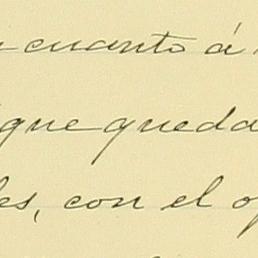 cuanto á
que queda
les, con el